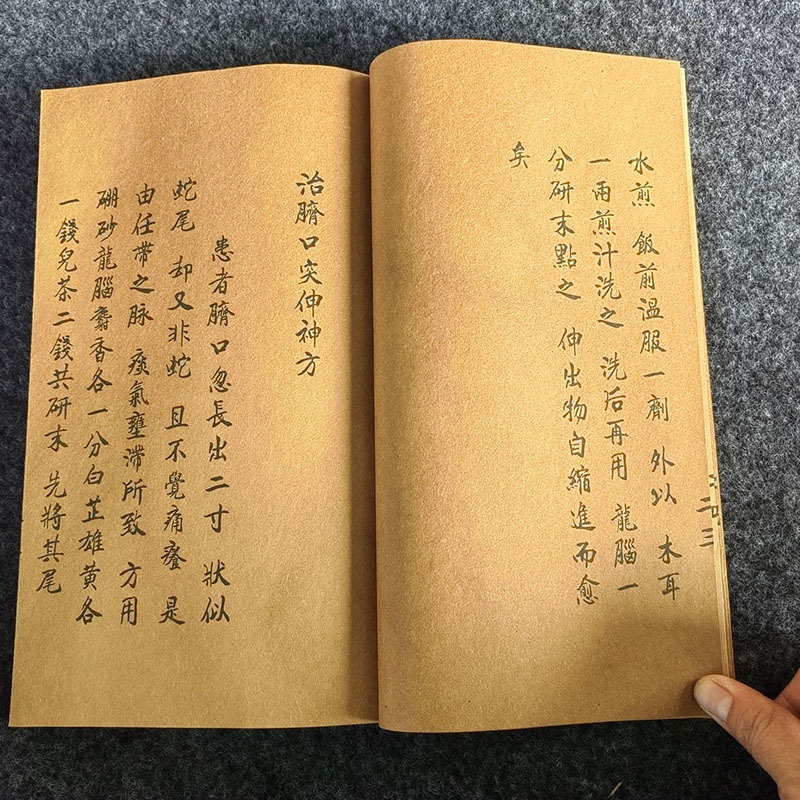 水煎 飯前溫服一劑 外以 木耳
一兩煎汁洗之 洗后再用 龍腦一
分研末點之 伸出物自縮進而愈
矣
治臍口突伸神方
患者臍口忽長出二寸 狀似
蛇尾 却又非蛇 且不覺痛癢 是
由任帶之脉 痰氣壅滯所致 方用
硼砂龍腦麝香各一分白芷雄黃各
一錢兒茶二錢共研末 先將其尾